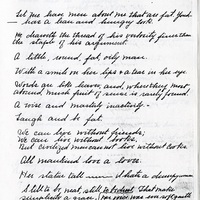 Let me have men about me that are fat. Yond
— has a lean and hungry look.
He draweth the thread of his verbosity finer than
the staple of his argument.
A little, round, fat, oily man.
With a smile on her lips & a tear in her eye
Words are like leaves, and where they most
abound Much fruit of sense is rarely found
A wise and masterly inactivity.
Laugh and be fat.
We can live without friends;
We can live without books.
But civilized man cannot live without cooks
All mankind love a lover.
Her stature tall — I hate a dumpy